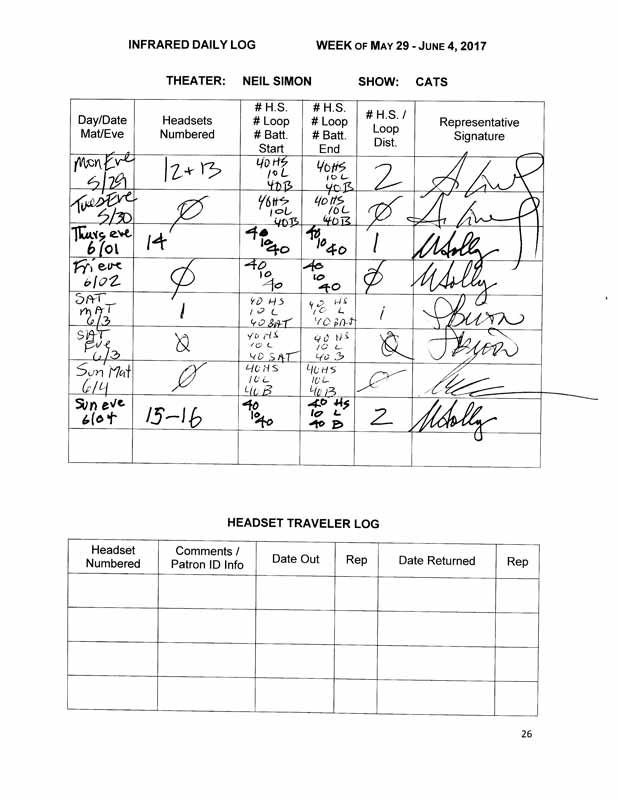 INFRARED DAILY LOG WEEK OF MAY 29 - JUNE 4, 2017
THEATER: NEIL SIMON SHOW: CATS
Day/Date Mat/Eve
Headsets Numbered
# H.S. # Loop # Batt. Start
# H.S. # Loop # Batt. End
# H.S. / Loop Dist.
Representative Signature
Mon Eve 5/29 12+13 40HS 10L 40B 40HS 10L 40B 2
Tues Eve 5/30 Ø 40HS 10L 40B 40HS 10L 40B Ø
Thurs eve 6/01 14 40 10 40 40 10 40 1
Fri eve 6/02 Ø 40 10 40 40 10 40 Ø
SAT MAT 6/3 1 40 HS 10 L 40 BAT 40 HS 10 L 40 BAT 1
SAT Eve 6/3 Ø 40 HS 10 L 40 SAT 40 HS 10 L 40 B Ø
Sun Mat 6/4 Ø 40HS 10L 40B 40HS 10L 40B Ø
Sun eve 6/04 15-16 40 10 40 40 HS 10 L 40 B 2
HEADSET TRAVELER LOG
Headset Numbered
Comments / Patron ID Info
Date Out
Rep
Date Returned
Rep
26